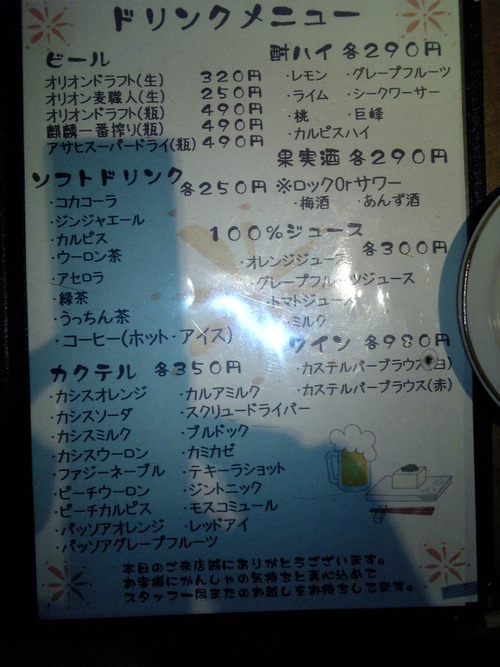 ドリンクメニュー
ビール
オリオンドラフト(生) 320円
オリオン麦職人(生) 250円
オリオンドラフト(瓶) 490円
麒麟一番搾り(瓶) 490円
アサヒスーパードライ(瓶) 490円
酎ハイ 各290円
・レモン ・グレープフルーツ
・ライム ・シークワーサー
・桃 ・巨峰
・カルピスハイ
果実酒 各290円
※ロックOrサワー
・梅酒 ・あんず酒
ソフトドリンク 各250円
・コカコーラ
・ジンジャエール
・カルピス
・ウーロン茶
・アセロラ
・緑茶
・うっちん茶
・コーヒー(ホット・アイス)
100%ジュース
各300円
・オレンジジュース
・グレープフルーツジュース
・トマトジュース
・ミルク
ワイン 各980円
・カステルバーブラウス(白)
・カステルバーブラウス(赤)
カクテル 各350円
・カシスオレンジ ・カルアミルク
・カシスソーダ ・スクリュードライバー
・カシスミルク ・ブルドック
・カシスウーロン ・カミカゼ
・ファジーネーブル ・テキーラショット
・ピーチウーロン ・ジントニック
・ピーチカルピス ・モスコミュール
・パッソアオレンジ ・レッドアイ
・パッソアグレープフルーツ
本日のご来店誠にありがとうございます。
お客様にかんしゃの気持ちと真心込めて
スタッフ一同またのお越しをお待ちしてます。